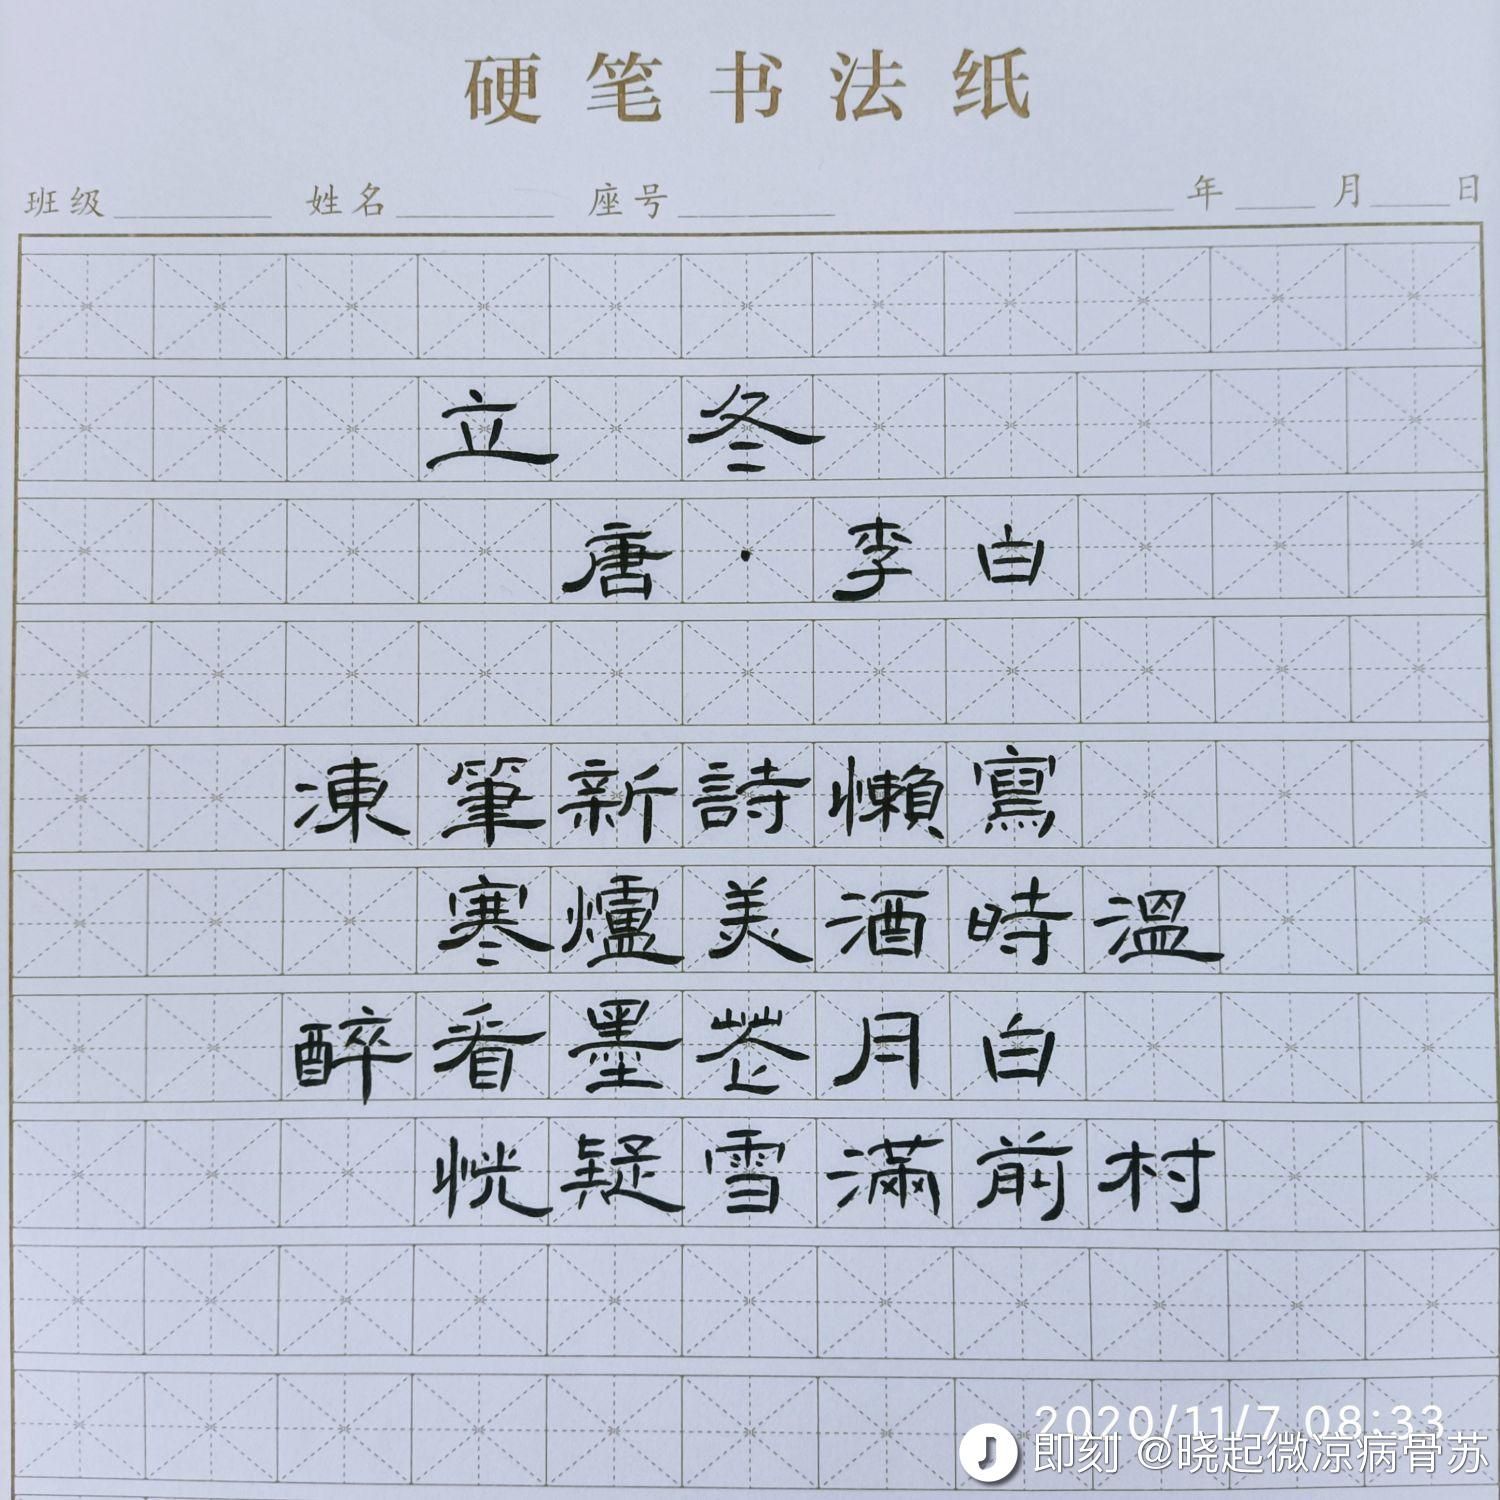 硬笔书法纸
班级 姓名 座号 年 月 日
立 冬
唐·李白
凍筆新詩懶寫
寒爐美酒時溫
醉看墨花月白
恍疑雪滿前村
2020/11/7 08:33
即刻 @晓起微凉病骨苏